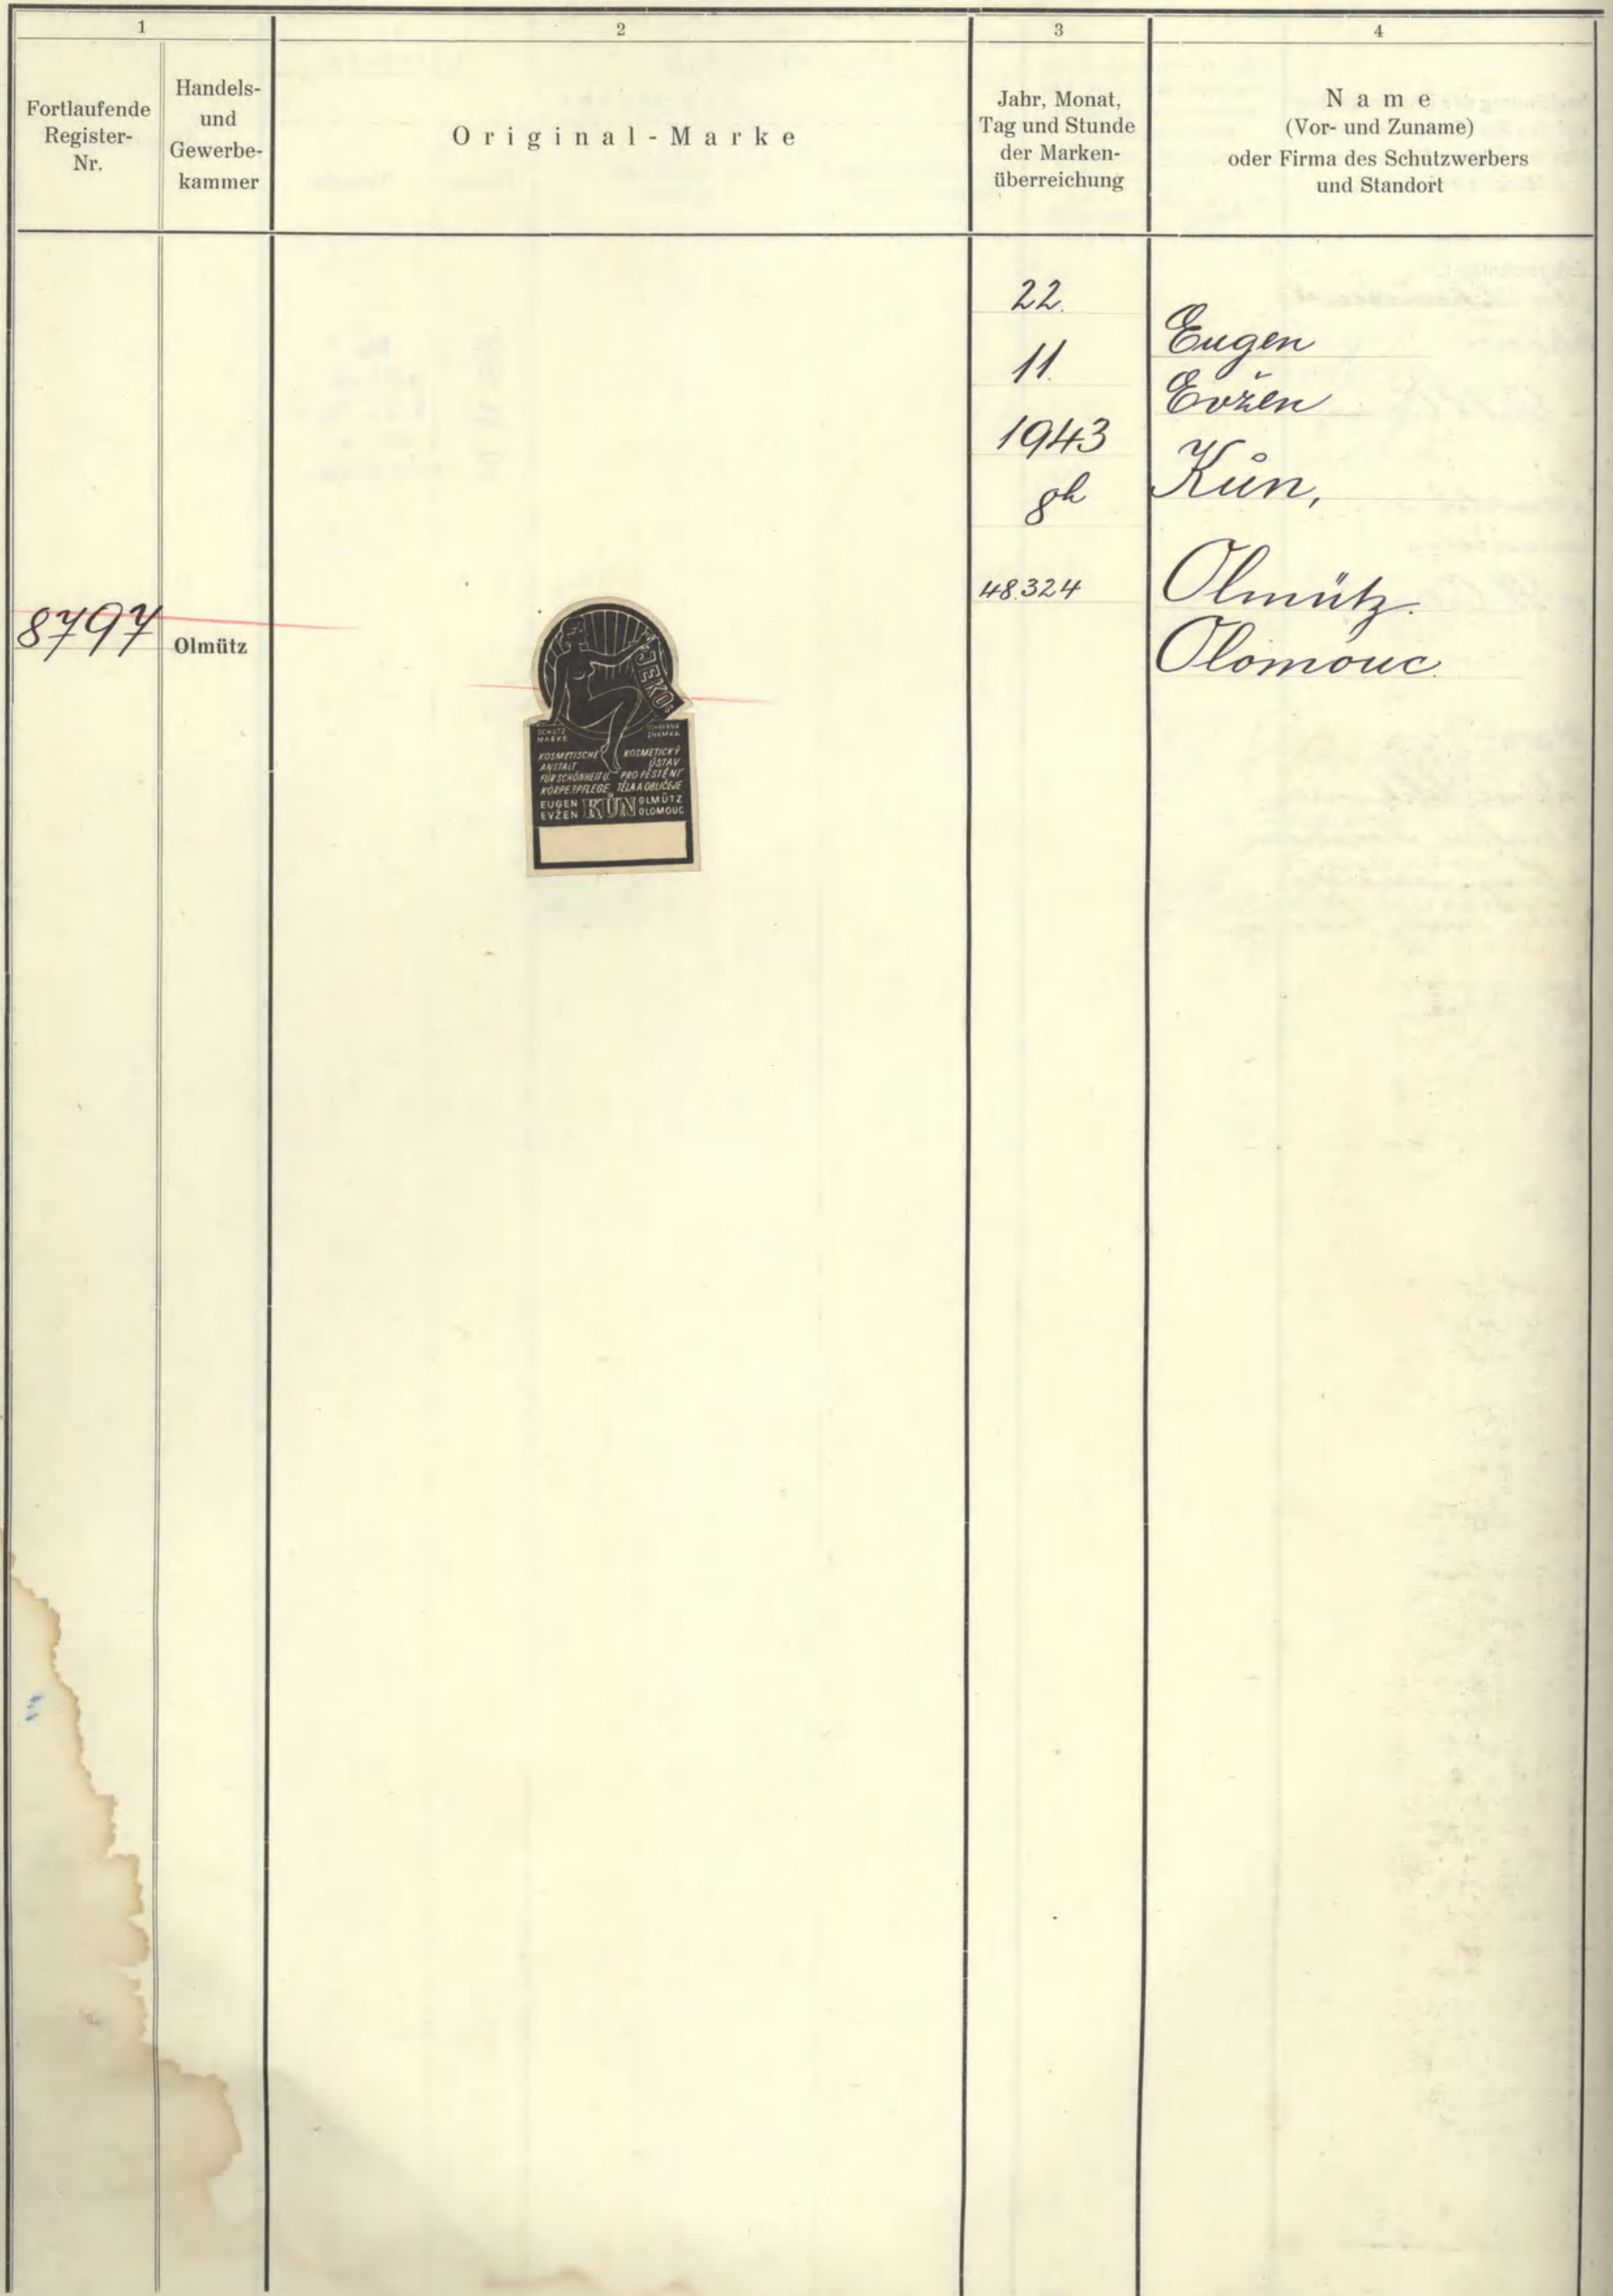 1
Fortlaufende
Register-
Nr.
Handels-
und
Gewerbe-
kammer
2
Original-Marke
3
Jahr, Monat,
Tag und Stunde
der Marken-
überreichung
4
Name
(Vor- und Zuname)
oder Firma des Schutzwerbers
und Standort
8797
Olmütz
JEKO
SCHUTZ
MARKE
OCHRANNÁ
ZNÁMKA
KOSMETISCHE
ANSTALT
FÜR SCHÖNHEIT U.
KÖRPERPFLEGE
KOSMETICKÝ
ÚSTAV
PRO PĚSTĚNÍ
TĚLA A OBLIČEJE
EUGEN
EVŽEN
KŮN
OLMÜTZ
OLOMOUC
22.
11.
1943
8h
48.324
Eugen
Evžen
Kůn,
Olmütz.
Olomouc.